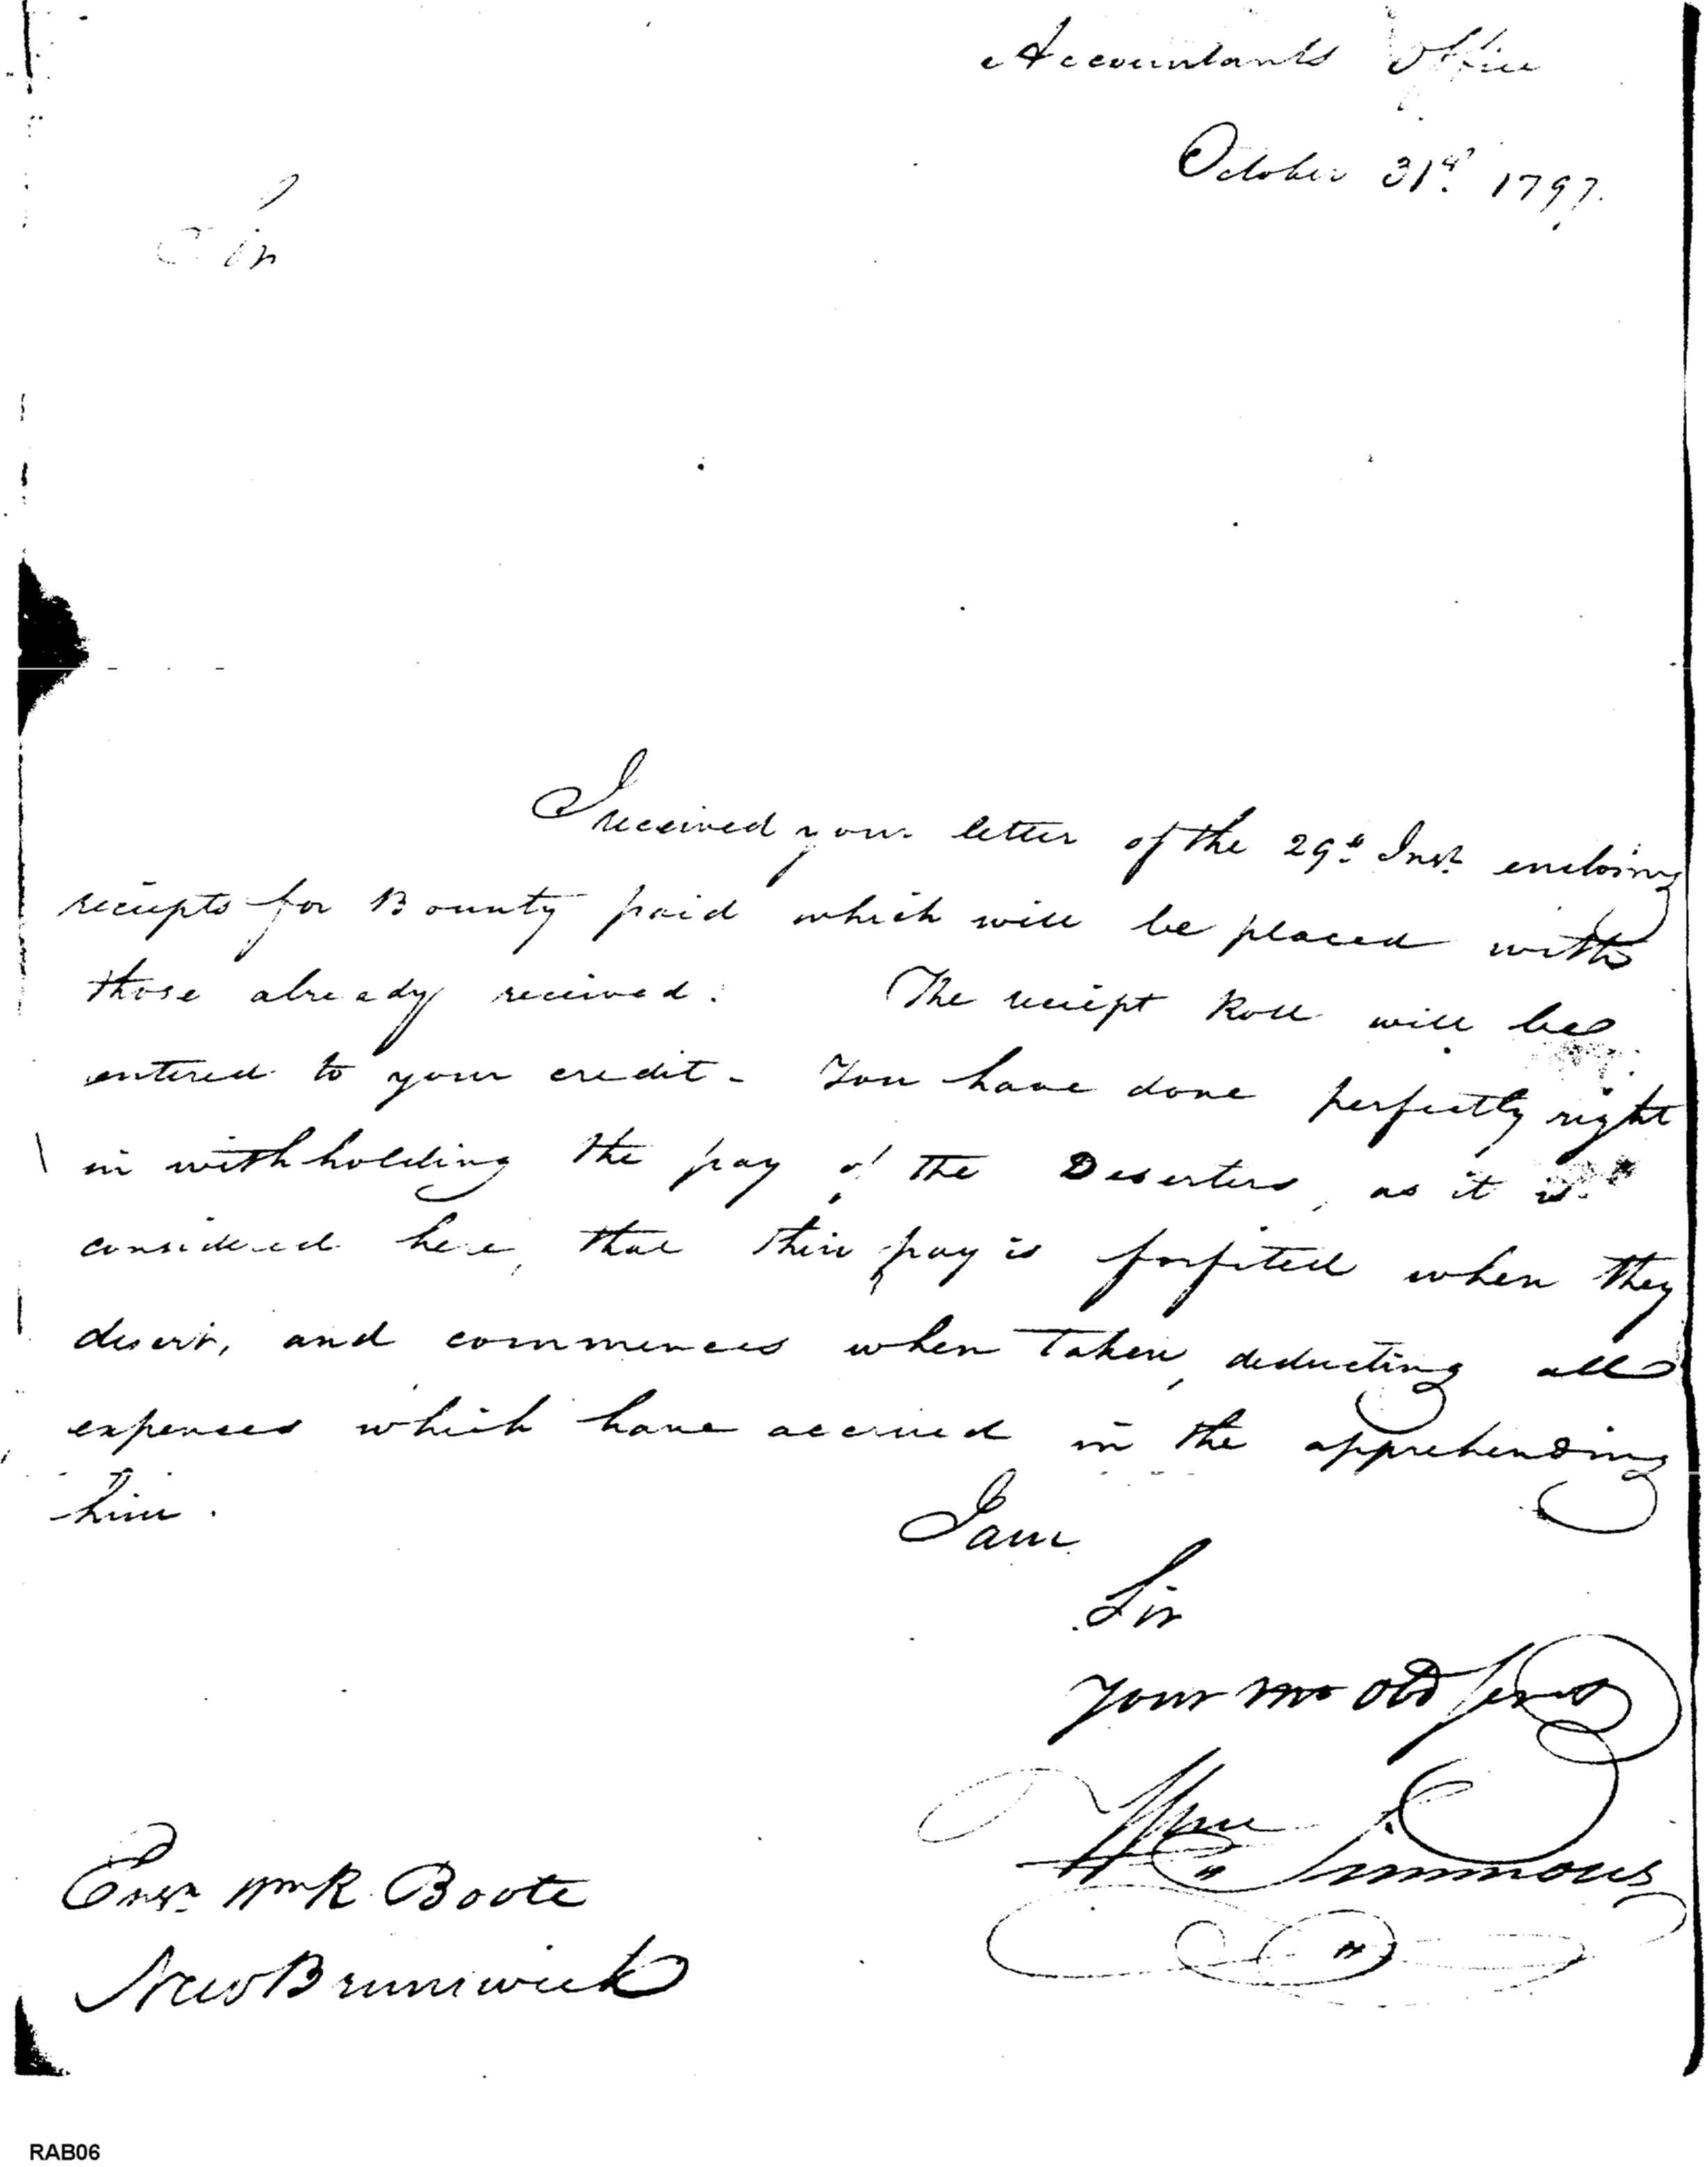 Accountants Office
October 31st 1797.
Sir
I received your letter of the 29th Inst. enclosing
receipts for Bounty paid which will be placed with
those already received. The receipt Roll will be
entered to your credit - You have done perfectly right
in withholding the pay of the Deserters, as it is
considered here, that their pay is forfited when they
desert, and commences when taken, deducting all
expences which have accrued in the apprehending
him.
I am
Sir
your mo Obd Servt
Wm Simmons
Ensn Wm R. Boote
New Brunswick
RAB06